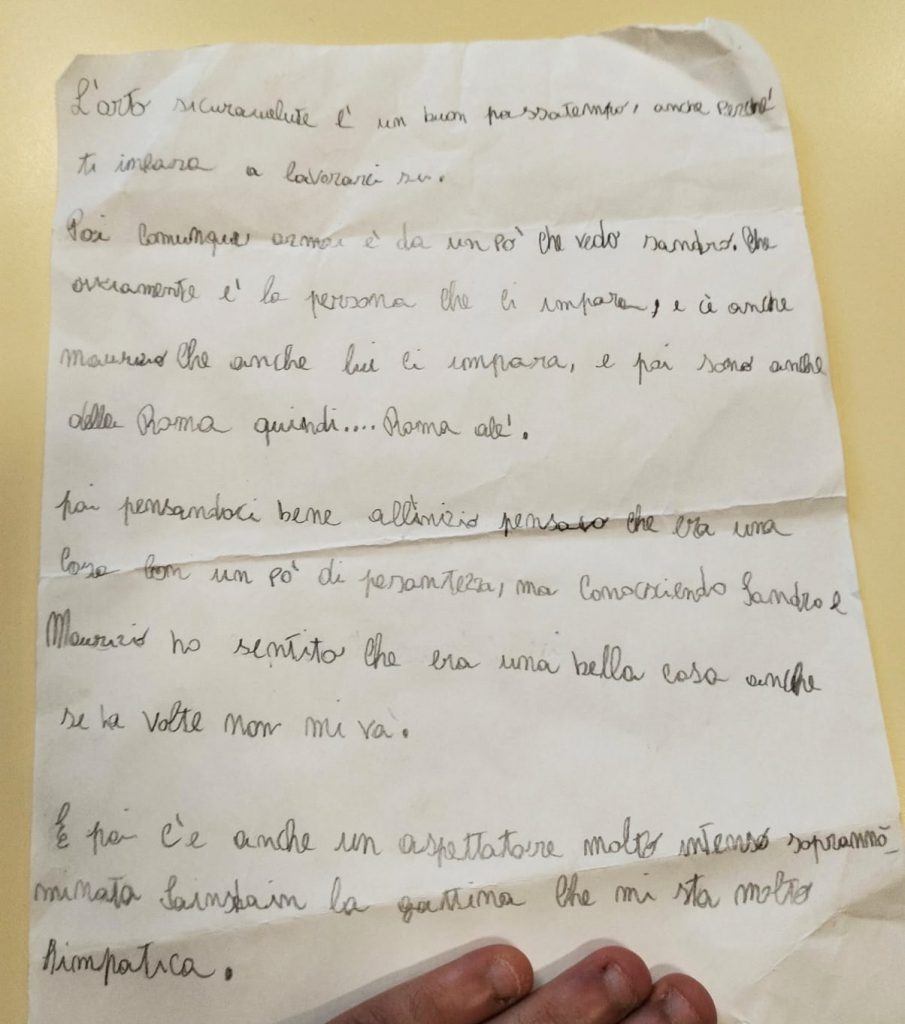 L'orto sicuramente è un buon passatempo, anche perché
ti impara a lavorarci su.
Poi comunque ormai è da un pò che vedo sandro. Che
ovviamente e' la persona che ci impara, e c'è anche
maurizio che anche lui ci impara, e poi sono anche
della Roma quindi.... Roma ale'.
poi pensandoci bene all'inizio pensavo che era una
cosa con un pò di pesantezza, ma conosciendo Sandro e
Maurizio ho sentito che era una bella cosa anche
se a volte non mi và.
E poi c'è anche un aspettatore molto intenso sopranno-
minata Sainstain la gattina che mi sta molto
simpatica.